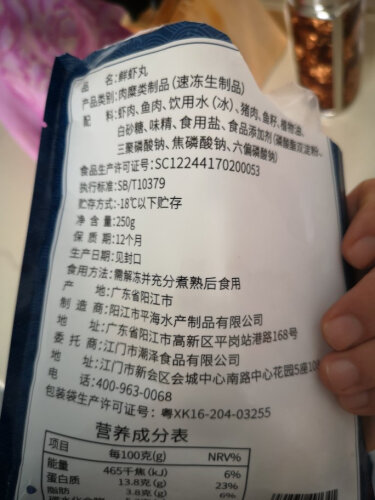 品 名:鲜虾丸
产品类别:肉糜类制品(速冻生制品)
配 料:虾肉、鱼肉、饮用水(冰)、猪肉、鱼籽、植物油、
白砂糖、味精、食用盐、食品添加剂(磷酸酯双淀粉、
三聚磷酸钠、焦磷酸钠、六偏磷酸钠)
食品生产许可证号:SC12244170200053
执行标准:SB/T10379
贮存方式:-18℃以下贮存
净 含 量:250g
保 质 期:12个月
生产日期:见封口
食用方法:需解冻并充分煮熟后食用
产 地:广东省阳江市
制 造 商:阳江市平海水产制品有限公司
地 址:广东省阳江市高新区平岗站港路168号
委 托 商:江门市潮泽食品有限公司
地 址:江门市新会区会城中心南路中心花园5座10
电 话:400-963-0068
包装袋生产许可证号:粤XK16-204-03255
营养成分表
项目 每100克(g) NRV%
能量 465千焦(kJ) 6%
蛋白质 13.8克(g) 23%
脂肪 3.8克(g) 6%